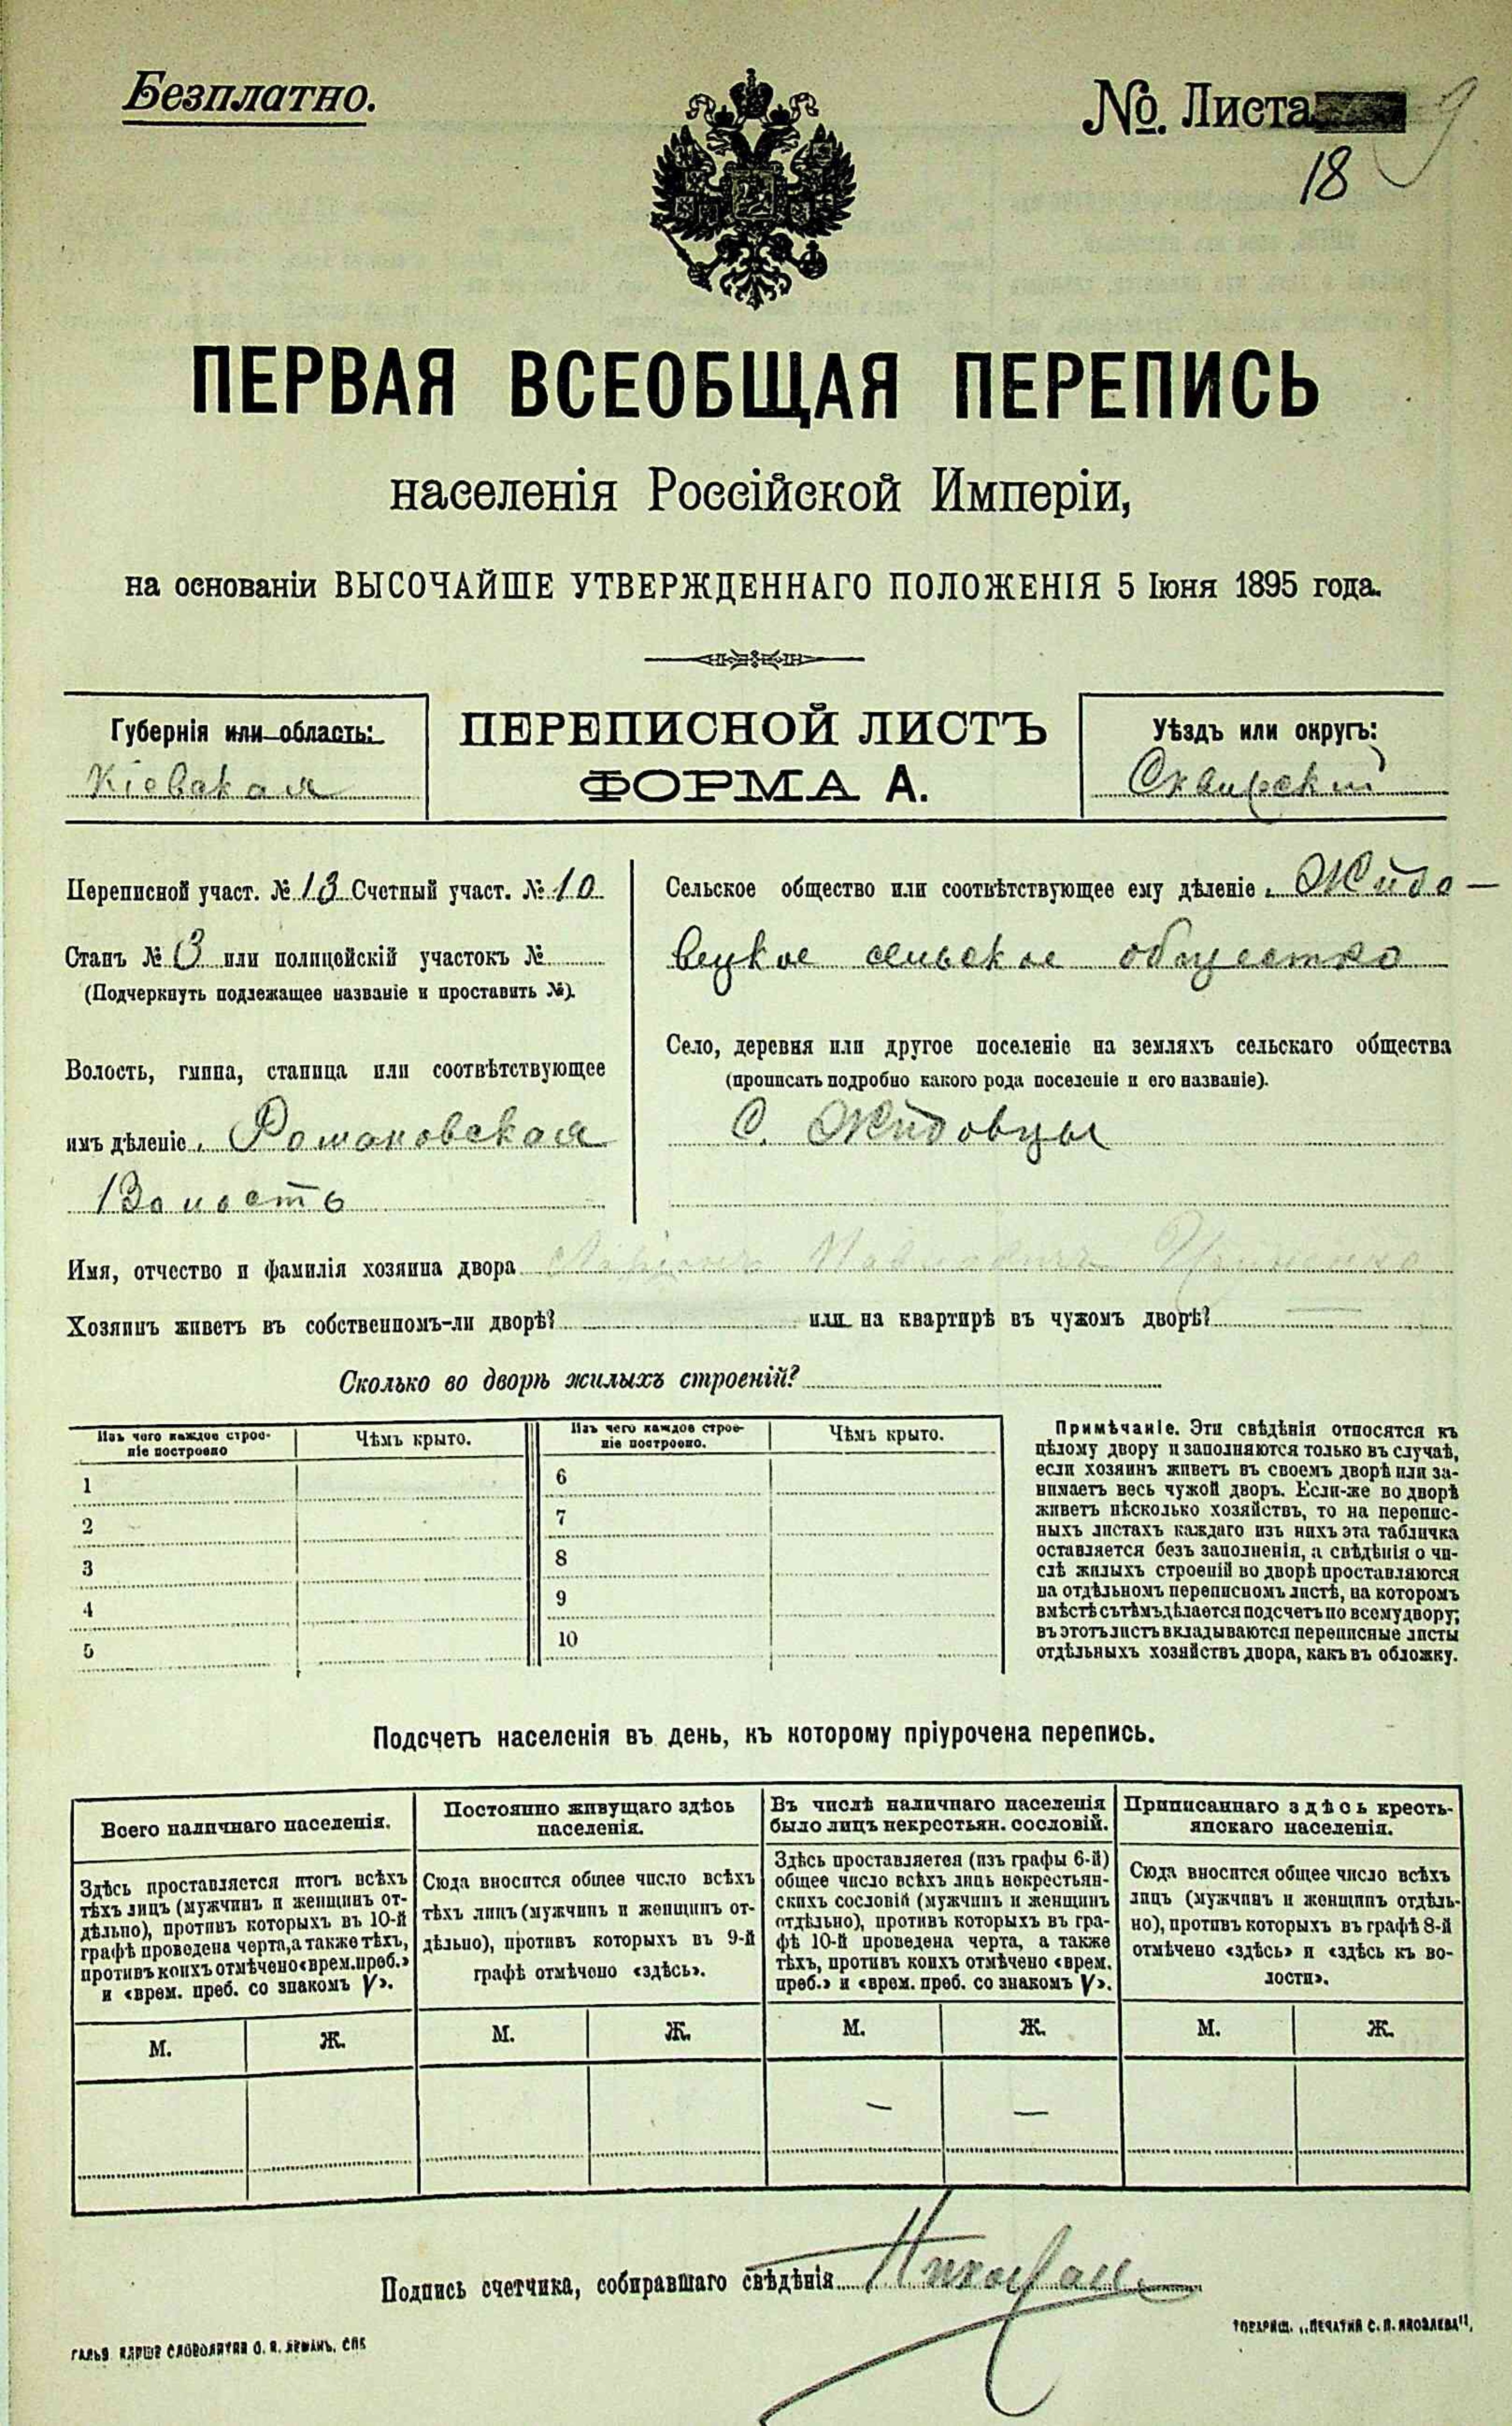 Безплатно.
№. Листа
18
9
ПЕРВАЯ ВСЕОБЩАЯ ПЕРЕПИСЬ
населенія Россійской Имперіи,
на основаніи ВЫСОЧАЙШЕ УТВЕРЖДЕННАГО ПОЛОЖЕНІЯ 5 Іюня 1895 года.
Губернія или область:
Кіевская
ПЕРЕПИСНОЙ ЛИСТЪ
ФОРМА А.
Уѣздъ или округъ:
Сквирскій
Переписной участ. № 13 Счетный участ. № 10
Станъ № 3 или полицейскій участокъ №
(Подчеркнуть подлежащее названіе и проставить №).
Волость, гмина, станица или соотвѣтствующее
имъ дѣленіе. Романовская
Волость
Сельское общество или соотвѣтствующее ему дѣленіе. Жидо-
вецкое сельское общество
Село, деревня или другое поселеніе на земляхъ сельскаго общества
(прописать подробно какого рода поселеніе и его названіе).
С. Жидовцы
Имя, отчество и фамилія хозяина двора
Хозяинъ живетъ въ собственномъ-ли дворѣ? или на квартирѣ въ чужомъ дворѣ?
Сколько во дворѣ жилыхъ строеній?
Изъ чего каждое строе-
ніе построено
Чѣмъ крыто.
Изъ чего каждое строе-
ніе построено.
Чѣмъ крыто.
1
2
3
4
5
6
7
8
9
10
Примѣчаніе. Эти свѣдѣнія относятся къ
цѣлому двору и заполняются только въ случаѣ,
если хозяинъ живетъ въ своемъ дворѣ или за-
нимаетъ весь чужой дворъ. Если-же во дворѣ
живетъ нѣсколько хозяйствъ, то на перепис-
ныхъ листахъ каждаго изъ нихъ эта табличка
оставляется безъ заполненія, а свѣдѣнія о чи-
слѣ жилыхъ строеній во дворѣ проставляются
на отдѣльномъ переписномъ листѣ, на которомъ
вмѣстѣ съ тѣмъ дѣлается подсчетъ по всему двору;
въ этотъ листъ вкладываются переписные листы
отдѣльныхъ хозяйствъ двора, какъ въ обложку.
Подсчетъ населенія въ день, къ которому пріурочена перепись.
Всего наличнаго населенія.
Здѣсь проставляется итогъ всѣхъ
тѣхъ лицъ (мужчинъ и женщинъ от-
дѣльно), противъ которыхъ въ 10-й
графѣ проведена черта, а также тѣхъ,
противъ коихъ отмѣчено «врем. преб.»
и «врем. преб. со знакомъ V».
Постоянно живущаго здѣсь
населенія.
Сюда вносится общее число всѣхъ
тѣхъ лицъ (мужчинъ и женщинъ от-
дѣльно), противъ которыхъ въ 9-й
графѣ отмѣчено «здѣсь».
Въ числѣ наличнаго населенія
было лицъ некрестьян. сословій.
Здѣсь проставляется (изъ графы 6-й)
общее число всѣхъ лицъ некрестьян-
скихъ сословій (мужчинъ и женщинъ
отдѣльно), противъ которыхъ въ гра-
фѣ 10-й проведена черта, а также
тѣхъ, противъ коихъ отмѣчено «врем.
преб.» и «врем. преб. со знакомъ V».
Приписаннаго здѣсь кресть-
янскаго населенія.
Сюда вносится общее число всѣхъ
лицъ (мужчинъ и женщинъ отдѣль-
но), противъ которыхъ въ графѣ 8-й
отмѣчено «здѣсь» и «здѣсь къ во-
лости».
М. Ж. М. Ж. М. Ж. М. Ж.
— —
Подпись счетчика, собиравшаго свѣдѣнія
ТОВАРИЩ. „ПЕЧАТНЯ С. П. ЯКОВЛЕВА",